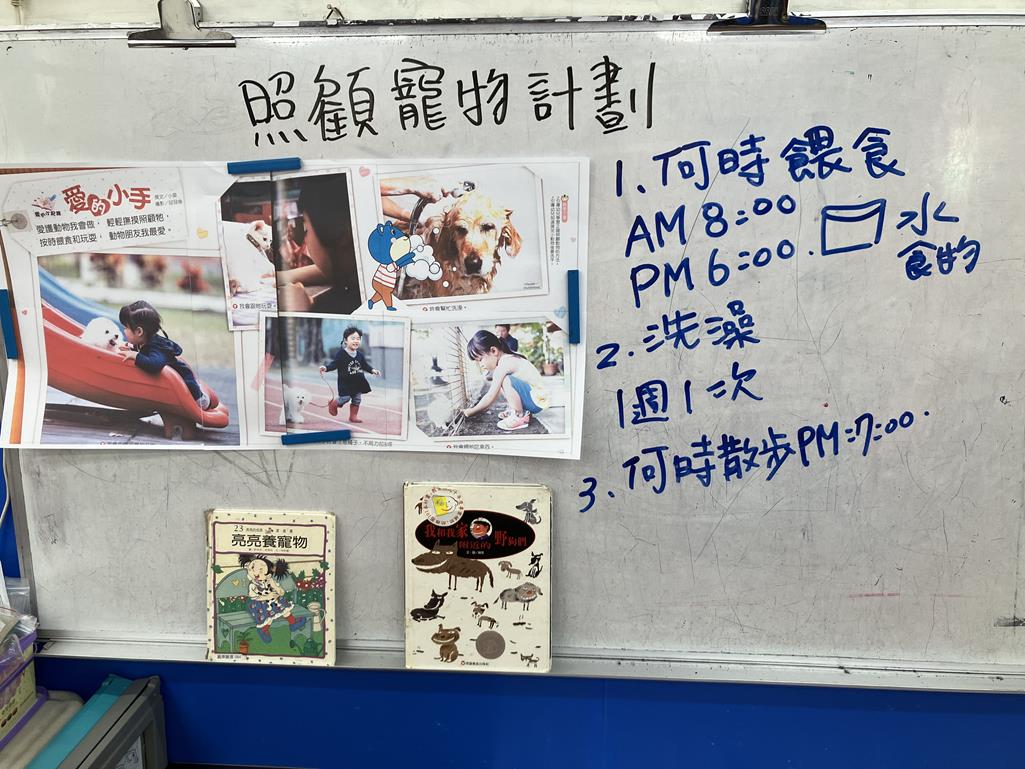 照顧寵物計劃
愛的小手
愛護動物我會做，輕輕撫摸照顧牠，
按時餵食和玩耍，動物朋友我最愛。
我會跟牠玩耍。
我會幫忙洗澡。
1、何時餵食
AM 8:00
PM 6:00.
水
食物
2.洗澡
1週1次
3、何時散步PM:7:00.
23
亮亮養寵物
我和我家
附近的
野狗們